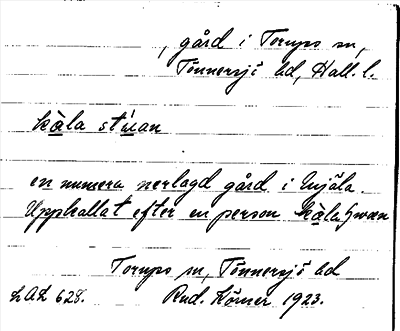 , gård i Torups sn,
Tönnersjö hd, Hall. l.
kàla stu̇an
en numera nerlagd gård i Mjäla.
Upphallat efter en person kàla Swæn
Torups sn, Tönnersjö hd
LAL 628. Rud. Körner 1923.